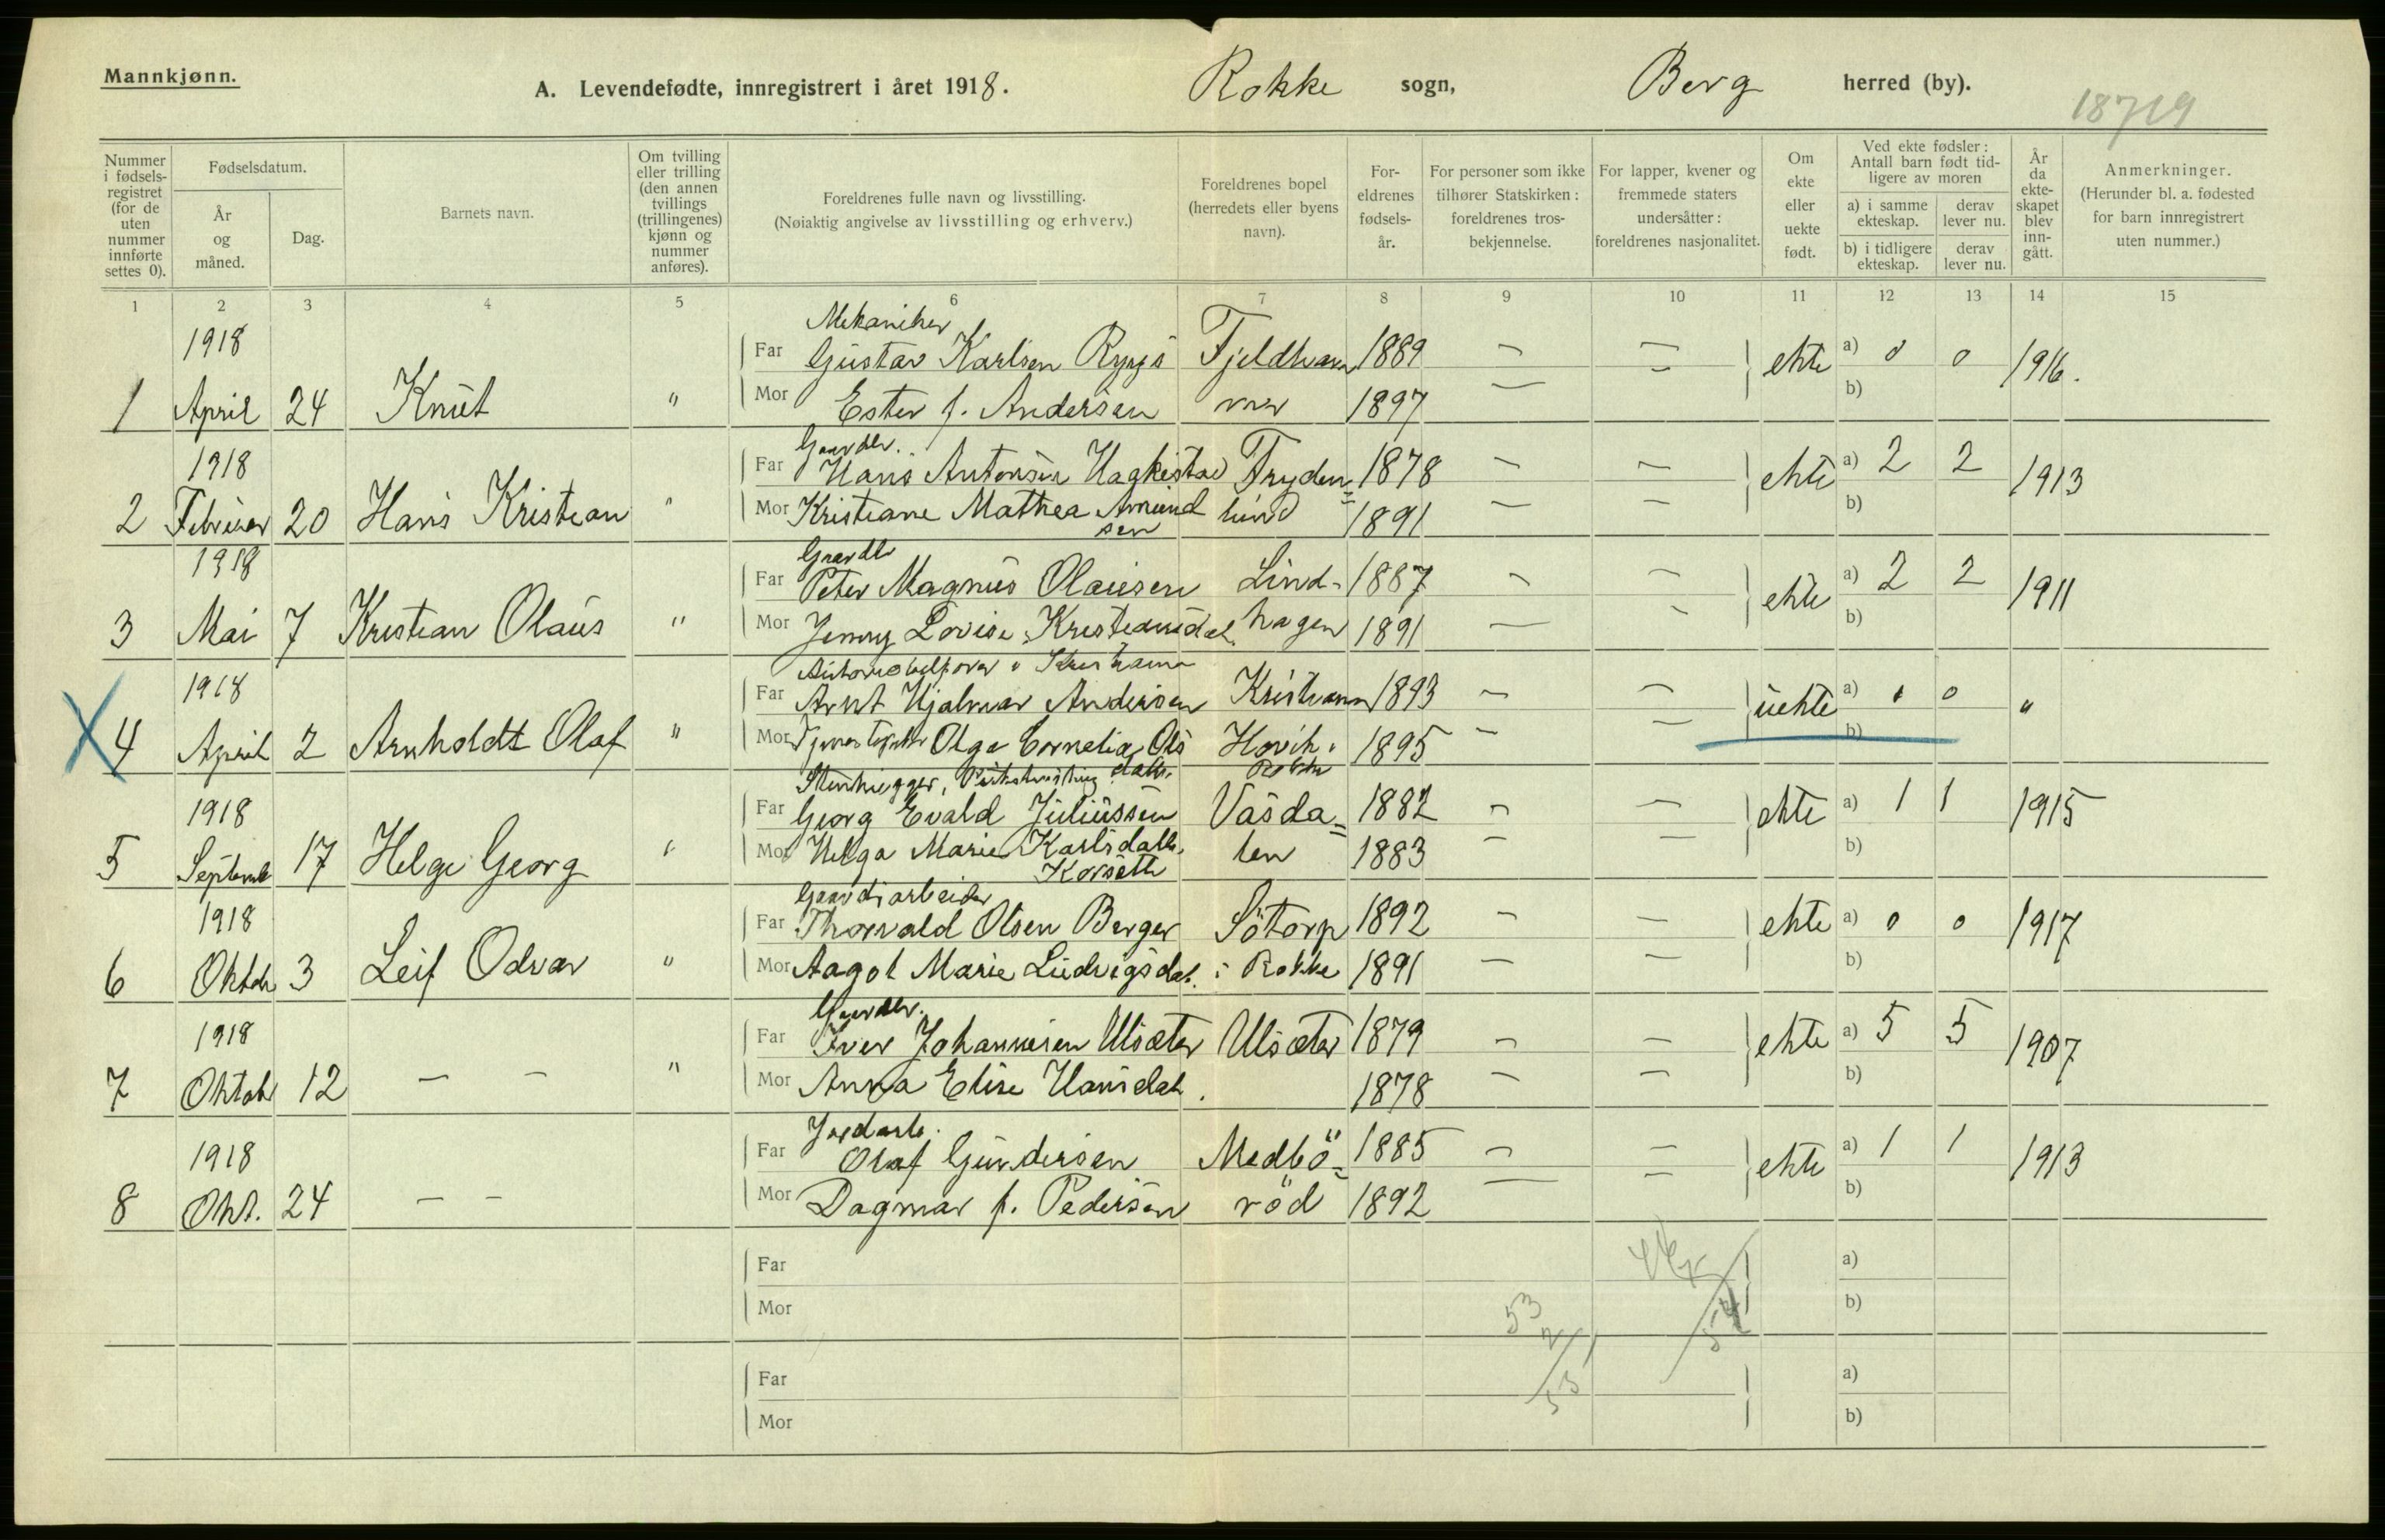 Mannkjønn.
A. Levendefødte, innregistrert i året 1918. Rokke sogn, Berg herred (by).
18719
Nummer i fødsels-registret (for de uten nummer innførte settes 0).
Fødselsdatum.
År og måned.
Dag.
Barnets navn.
Om tvilling eller trilling (den annen tvillings (trillingenes) kjønn og nummer anføres).
Foreldrenes fulle navn og livsstilling.
(Nøiaktig angivelse av livsstilling og erhverv.)
Foreldrenes bopel (herredets eller byens navn).
For-eldrenes fødsels-år.
For personer som ikke tilhører Statskirken: foreldrenes tros-bekjennelse.
For lapper, kvener og fremmede staters undersåtter: foreldrenes nasjonalitet.
Om ekte eller uekte født.
Ved ekte fødsler: Antall barn født tid-ligere av moren
a) i samme ekteskap.
derav lever nu.
b) i tidligere ekteskap.
derav lever nu.
År da ekte-skapet blev inn-gått.
Anmerkninger.
(Herunder bl. a. fødested for barn innregistrert uten nummer.)
1 2 3 4 5 6 7 8 9 10 11 12 13 14 15
Mekaniker
1918 Far Gustav Karlsen Fjeldhavn 1889 — — ekte a) 0 0 1916.
1 April 24 Knut " Mor Ester f. Andersen 1897 — — b)
Gaardbr.
1918 Far Hans Antonsen Hagkestad Fryden= 1878 — — ekte a) 2 2 1913
2 Februar 20 Hans Kristian " Mor Kristiane Mathea Amund lund 1891 — — b)
sen
Gaardbr
1918 Far Peter Magnus Olausen Lind- 1887 — — ekte a) 2 2 1911
3 Mai 7 Kristian Olaus " Mor Jenny Lovise Kristiansdat. hagen 1891 — — b)
Kristiania
1918 Far Arnt Hjalmar Andersen Kristiania 1893 — — uekte a) 0 0 "
4 April 2 Arnholdt Olaf " Mor Olga Cornelia Ols Hovik i 1895 — — b)
datter Rokke
Stenhugger,
1918 Far Georg Evald Juliussen Vasda= 1882 — — ekte a) 1 1 1915
5 Septemb 17 Helge Georg " Mor Helga Marie Karlsdatt. len 1883 — — b)
Korsæth
Gaardsarbeider
1918 Far Thorvald Olsen Berger Sötorp 1892 — — ekte a) 0 0 1917
6 Oktob 3 Leif Odvar " Mor Aagot Marie Ludvigsdat. i Rokke 1891 — — b)
Gaardbr.
1918 Far Iver Johannesen Ulsæter Ulsæter 1879 — — ekte a) 5 5 1907
7 Oktob 12 — — " Mor Anna Elise Hansdat. 1878 — — b)
Jordarb.
1918 Far Olaf Gundersen Medbö= 1885 — — ekte a) 1 1 1913
8 Okt. 24 — — Mor Dagmar f. Pedersen röd 1892 — — b)
Far a)
Mor 53 b)
Far 53 a)
Mor b)